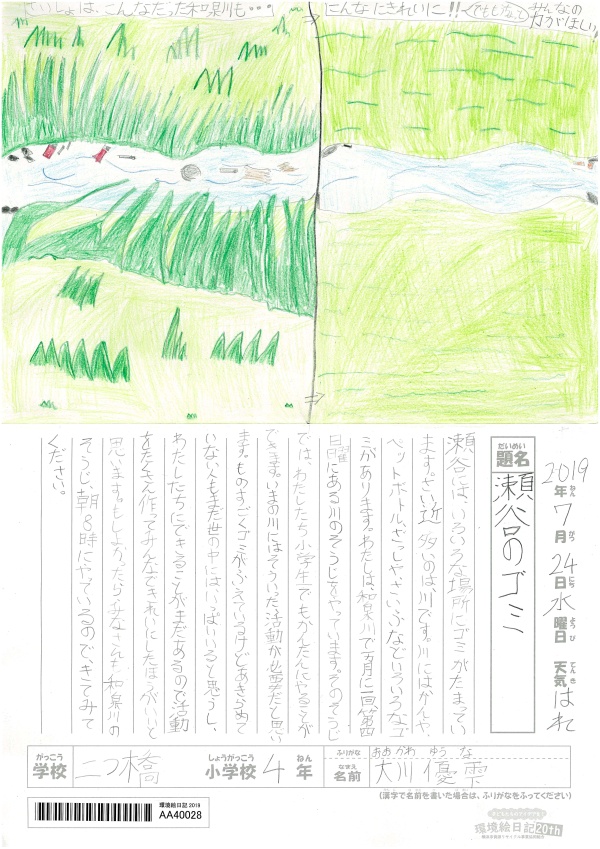 さいしょは、こんなだった和泉川も…
こんなにきれいに!!
でももっとみんなの力がほしい
2019年7月24日水曜日 天気はれ
ねん がつ にち ようび てんき
だいめい
題名 瀬谷のゴミ
瀬谷には、いろいろな場所にゴミがたまってい
ます。さい近多いのは、川です。川にはかんや、
ペットボトル、ざっしやさいふなどいろいろなゴ
ミがあります。わたしは、和泉川で五月に一回第四
日曜にある川のそうじをやっています。そのそうじ
では、わたしたち小学生でもかんたんにやることが
できます。いまの川にはそういった活動が必要だと思い
ます。ものすごくゴミがふえているけどあきらめて
いない人もまだ世の中にはいっぱいいると思うし、
わたしたちにできることがまだあるので活動
をたくさん作ってみんなできれいにしたほうがいいと
思います。もしよかったら、みなさんも、和泉川の
そうじ、朝8時にやっているので、きてみて
ください。
がっこう しょうがっこう ねん
学校 二つ橋 小学校 4年
ふりがな おおかわ ゆうな
なまえ
名前 大川 優雫
(漢字で名前を書いた場合は、ふりがなをふってください)
環境絵日記 2019
AA40028
環境絵日記20th